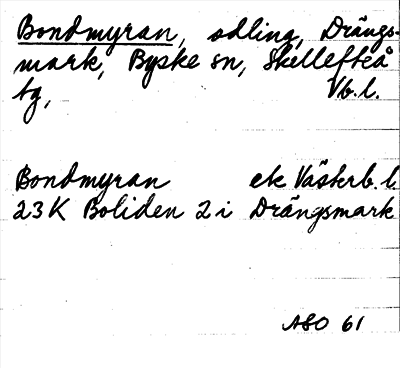 Bondmyran, odling, Drängs-
mark, Byske sn, Skellefteå
tg, Vb.l.
Bondmyran ek Västerb.l
23K Boliden 2i Drängsmark
ASO 61